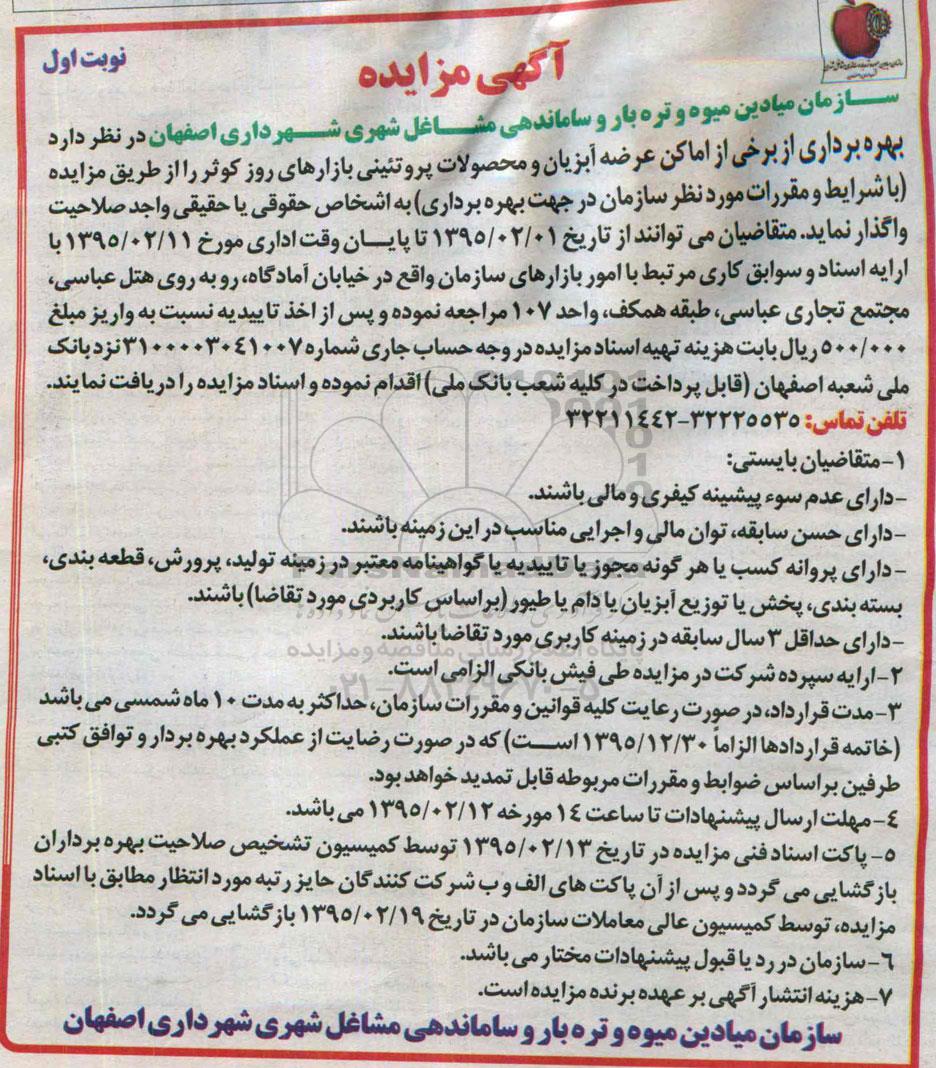 نوبت اول
آگهی مزایده
سازمان میادین میوه و تره بار و ساماندهی مشاغل شهری شهرداری اصفهان در نظر دارد
بهره برداری از برخی از اماکن عرضه آبزیان و محصولات پروتئینی بازارهای روز کوثر را از طریق مزایده
(با شرایط و مقررات مورد نظر سازمان در جهت بهره برداری) به اشخاص حقوقی یا حقیقی واجد صلاحیت
واگذار نماید. متقاضیان می توانند از تاریخ ۱۳۹۵/۰۲/۰۱ تا پایان وقت اداری مورخ ۱۳۹۵/۰۲/۱۱ با
ارایه اسناد و سوابق کاری مرتبط با امور بازارهای سازمان واقع در خیابان آمادگاه، رو به روی هتل عباسی،
مجتمع تجاری عباسی، طبقه همکف، واحد ۱۰۷ مراجعه نموده و پس از اخذ تاییدیه نسبت به واریز مبلغ
۵۰۰/۰۰۰ ریال بابت هزینه تهیه اسناد مزایده در وجه حساب جاری شماره ۳۱۰۰۰۰۳۰۴۱۰۰۷ نزد بانک
ملی شعبه اصفهان (قابل پرداخت در کلیه شعب بانک ملی) اقدام نموده و اسناد مزایده را دریافت نمایند.
تلفن تماس: ۳۲۲۲۵۵۳۵-۳۲۲۱۱٤٤۲
۱-متقاضیان بایستی:
-دارای عدم سوء پیشینه کیفری و مالی باشند.
-دارای حسن سابقه، توان مالی و اجرایی مناسب در این زمینه باشند.
-دارای پروانه کسب یا هر گونه مجوز یا تاییدیه یا گواهینامه معتبر در زمینه تولید، پرورش، قطعه بندی،
بسته بندی، پخش یا توزیع آبزیان یا دام یا طیور (براساس کاربردی مورد تقاضا) باشند.
-دارای حداقل ۳ سال سابقه در زمینه کاربری مورد تقاضا باشند.
پایگاه اطلاع رسانی مناقصه و مزایده
۲-ارایه سپرده شرکت در مزایده طی فیش بانکی الزامی است.
۰۲۱-۸۸۳۴۹۶۷۰-۵
۳-مدت قرارداد، در صورت رعایت کلیه قوانین و مقررات سازمان، حداکثر به مدت ۱۰ ماه شمسی می باشد
(خاتمه قراردادها الزاماً ۱۳۹۵/۱۲/۳۰ است) که در صورت رضایت از عملکرد بهره بردار و توافق کتبی
طرفین براساس ضوابط و مقررات مربوطه قابل تمدید خواهد بود.
٤-مهلت ارسال پیشنهادات تا ساعت ۱٤ مورخه ۱۳۹۵/۰۲/۱۲ می باشد.
۵- پاکت اسناد فنی مزایده در تاریخ ۱۳۹۵/۰۲/۱۳ توسط کمیسیون تشخیص صلاحیت بهره برداران
بازگشایی می گردد و پس از آن پاکت های الف و ب شرکت کنندگان حایز رتبه مورد انتظار مطابق با اسناد
مزایده، توسط کمیسیون عالی معاملات سازمان در تاریخ ۱۳۹۵/۰۲/۱۹ بازگشایی می گردد.
٦-سازمان در رد یا قبول پیشنهادات مختار می باشد.
۷-هزینه انتشار آگهی بر عهده برنده مزایده است.
سازمان میادین میوه و تره بار و ساماندهی مشاغل شهری شهرداری اصفهان